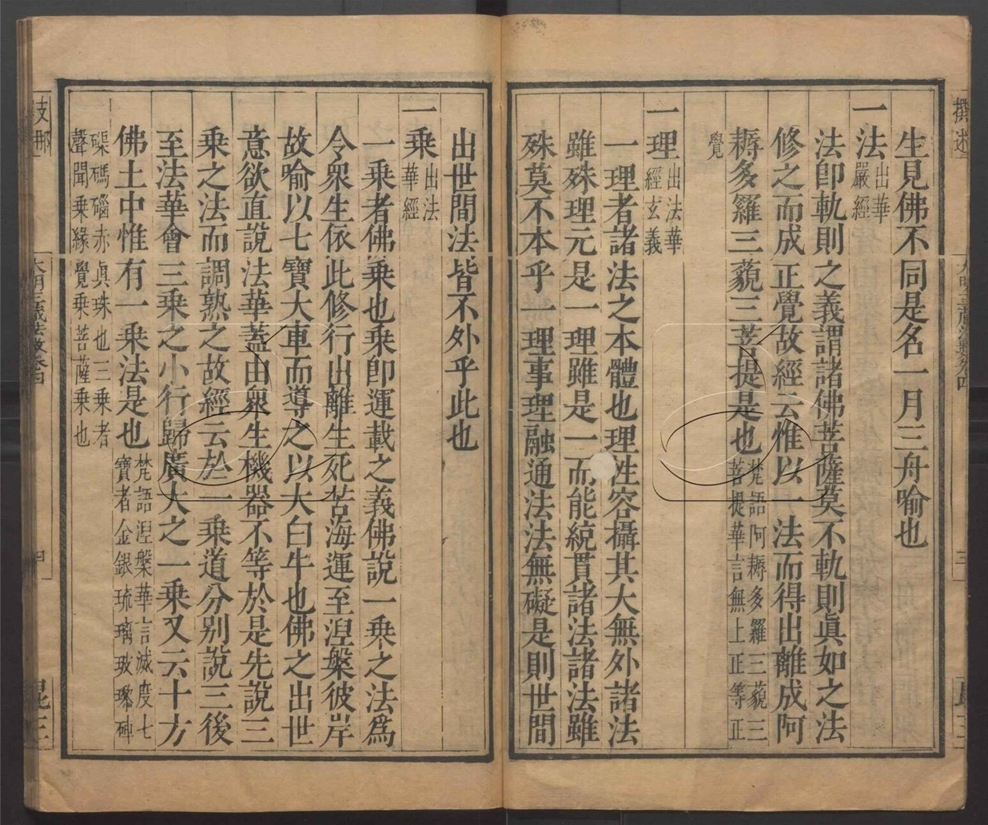 撰述
三
生見佛不同是名一月三舟喻也
一法出華嚴經
法即軌則之義謂諸佛菩薩莫不軌則眞如之法
修之而成正覺故經云惟以一法而得出離成阿
耨多羅三藐三菩提是也梵語阿耨多羅三藐三菩提華言無上正等正
覺
一理出法華經玄義
一理者諸法之本體也理性容攝其大無外諸法
雖殊理元是一理雖是一而能統貫諸法諸法雖
殊莫不本乎一理事理融通法法無礙是則世間
出世間法皆不外乎此也
一乘出法華經
一乘者佛乘也乘即運載之義佛說一乘之法爲
令衆生依此修行出離生死苦海運至涅槃彼岸
故喻以七寶大車而導之以大白牛也佛之出世
意欲直說法華蓋由衆生機器不等於是先說三
乘之法而調熟之故經云於一乘道分别說三後
至法華會三乘之小行歸廣大之一乘又云十方
佛土中惟有一乘法是也梵語涅槃華言滅度七寶者金銀琉璃玻瓈硨
磲碼碯赤眞珠也三乘者聲聞乘緣覺乘菩薩乘也
支那
大明三藏法數卷四
四
昆三